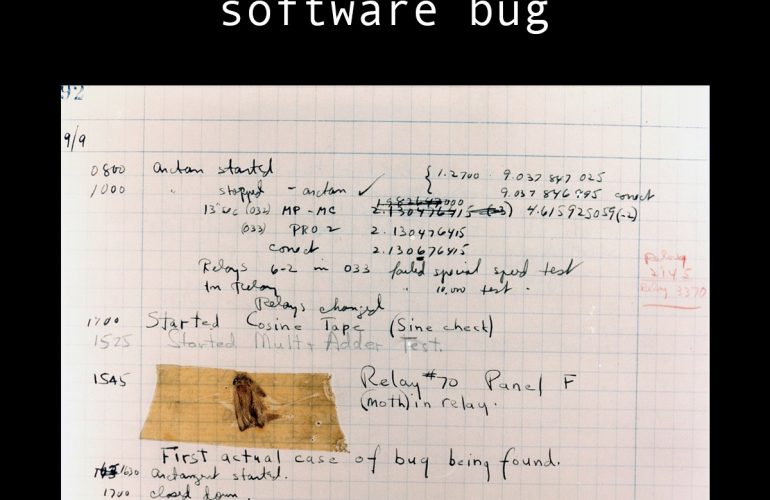 software bug
92
9/9
0800 Antan started
1000 " stopped - antan ✓ { 1.2700 9.037 847 025
9.037 846 995 conect
13"uc (032) MP - MC 2.130476415 (-3) 4.615925059(-2)
(033) PRO 2 2.130476415
conect 2.130676415
Relays 6-2 in 033 failed special speed test
In Relay " 10.000 test .
Relay
2145
Relay 3370
Relays changed
1700 Started Cosine Tape (Sine check)
1525 Started Mult + Adder Test.
1545 Relay #70 Panel F
(moth) in relay.
First actual case of bug being found.
1630 antangent started.
1700 closed down.